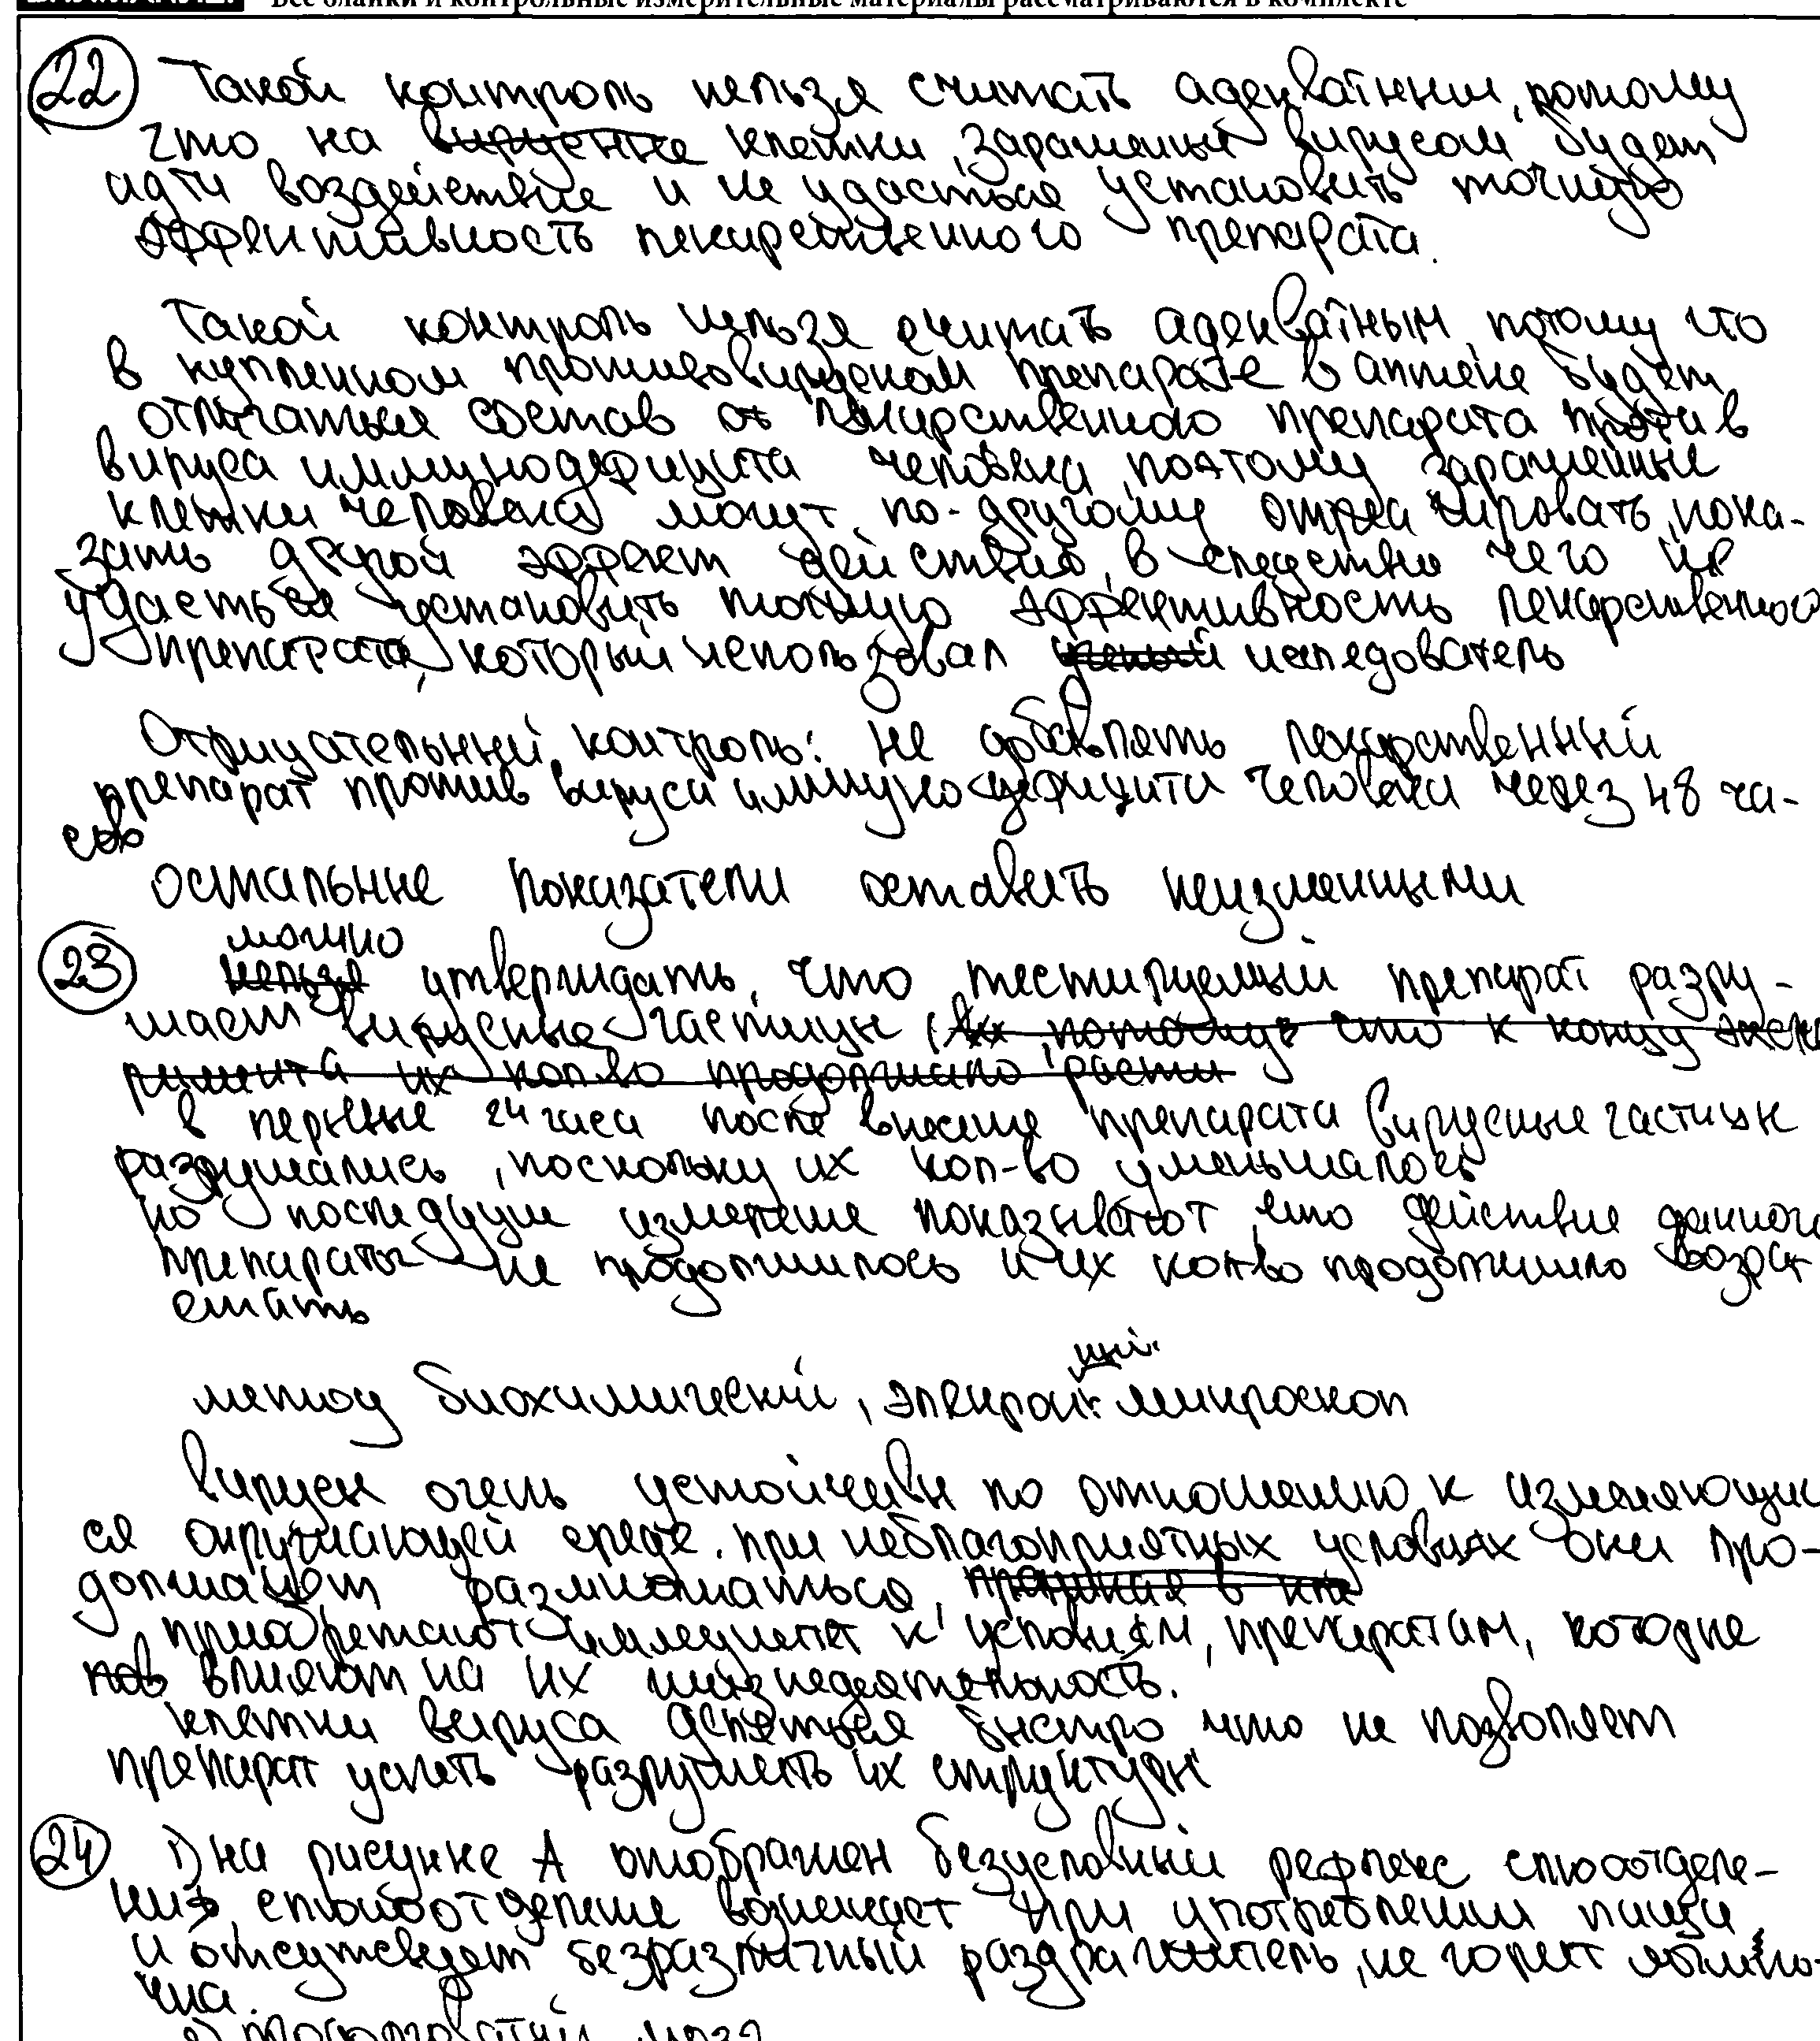 Все бланки и контрольные измерительные материалы рассматриваются в комплекте
22 Такой контроль нельзя считать адекватным, потому
что на вирусные клетки, зараженные вирусом, будет
идти воздействие и не удасться установить точную
эффективность лекарственного препарата.
Такой контроль нельзя считать адекватным, потому что
в купленном противовирусном препарате в аптеке будет
отличаться состав от лекарственного препарата против
вируса иммунодефицита человека, поэтому зараженные
клетки человека могут по-другому отреагировать, пока-
зать другой эффект действия, в следствие чего не
удасться установить точную эффективность лекарственного
препарата, который использовал ученый исследователь
Отрицательный контроль: не добавлять лекарственный
препарат против вируса иммунодефицита человека через 48 ча-
сов
остальные показатели оставить неизменными
можно
23 нельзя утверждать, что тестируемый препарат разру-
шает вирусные частицы, потому что к концу экспе
римента их кол-во продолжало расти
в первые 24 часа после внесение препарата вирусные частицы
разрушались, поскольку их кол-во уменьшалось
но последущие измерение показывают, что действие данного
препарата не продолжилось и их кол-во продолжило возра
стать
метод биохимический, микроскоп
вирусы очень устойчивы по отношению к изменяющий
ся окружающей среде. при неблагоприятных условиях они про-
должают размножаться,
приобретают иммунитет к условиям, препаратам, которые
влияют на их жизнедеятельность.
клетки вируса деляться быстро что не позволяет
препарат успеть разрушить их структуры
24 1) на рисунке А отображен безусловный рефлекс слюоотделе-
ния, слюноотделение возникает при употреблении пищи
и отсутсвует безразличный раздражитель, не горит лампо-
чка.
2) продолговатый мозг